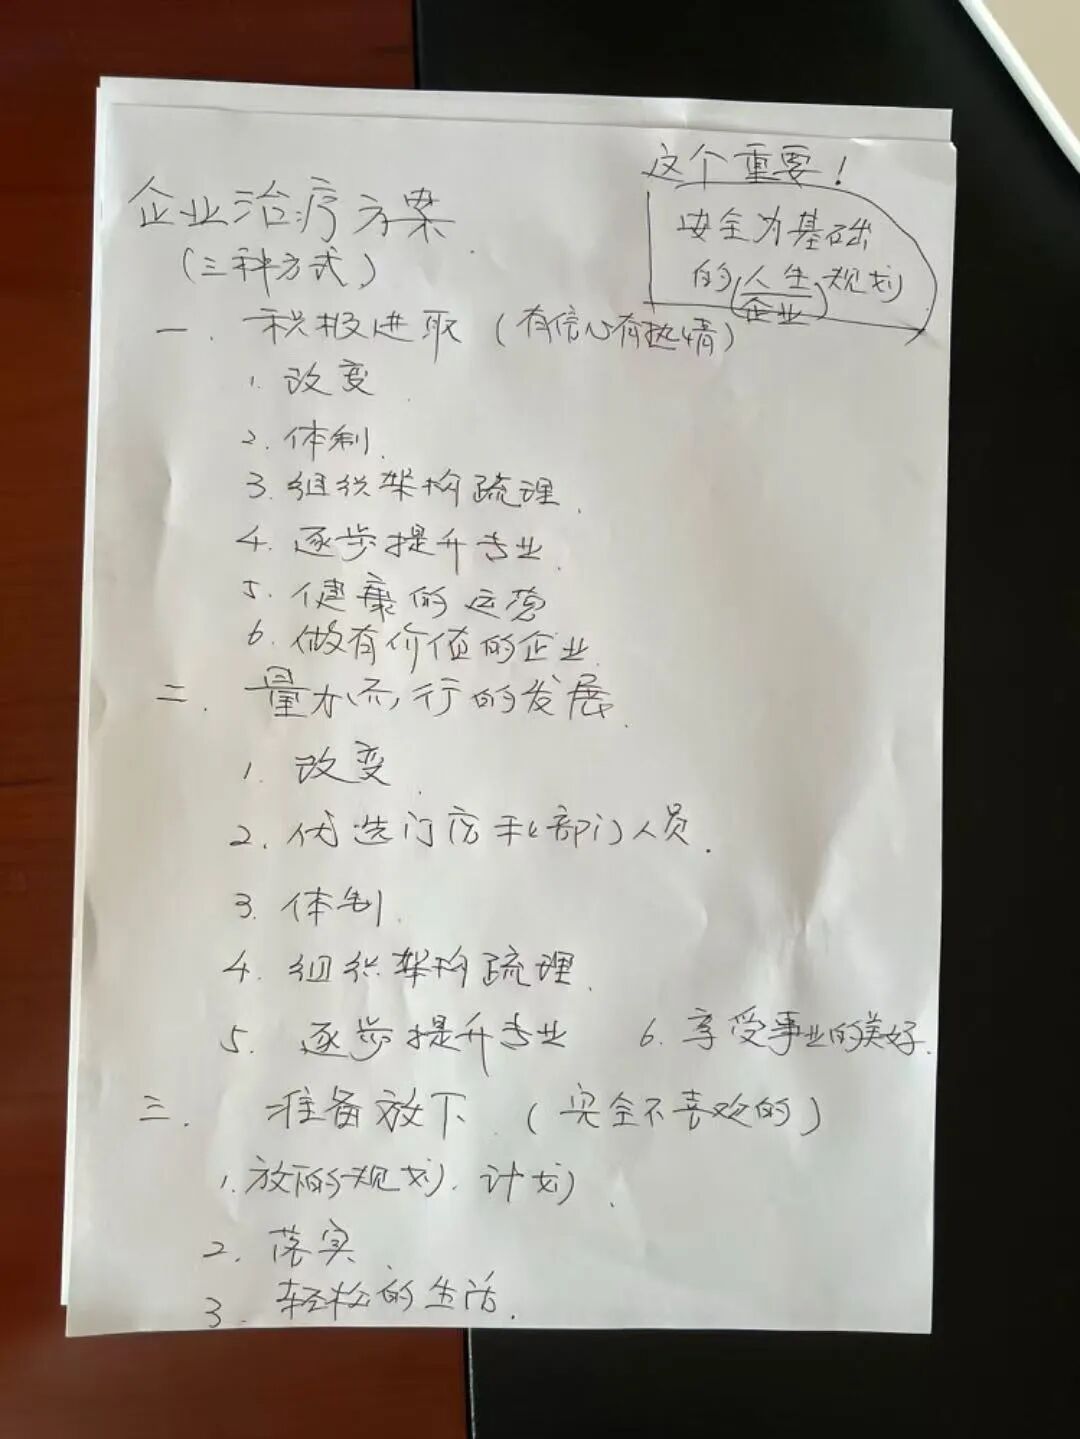 这个重要！
安全为基础
的(人生)规划
企业
企业治疗方案
（三种方式）
一. 积极进取（有信心有热情）
1. 改变
2. 体制.
3. 组织架构疏理.
4. 逐步提升专业.
5. 健康的运营
6. 做有价值的企业.
二. 量力而行的发展.
1. 改变.
2. 优选门店和部门人员.
3. 体制.
4. 组织架构疏理.
5. 逐步提升专业 6. 享受事业的美好.
三. 准备放下.（完全不喜欢的）
1. 放下的规划. 计划.
2. 落实.
3. 轻松的生活.